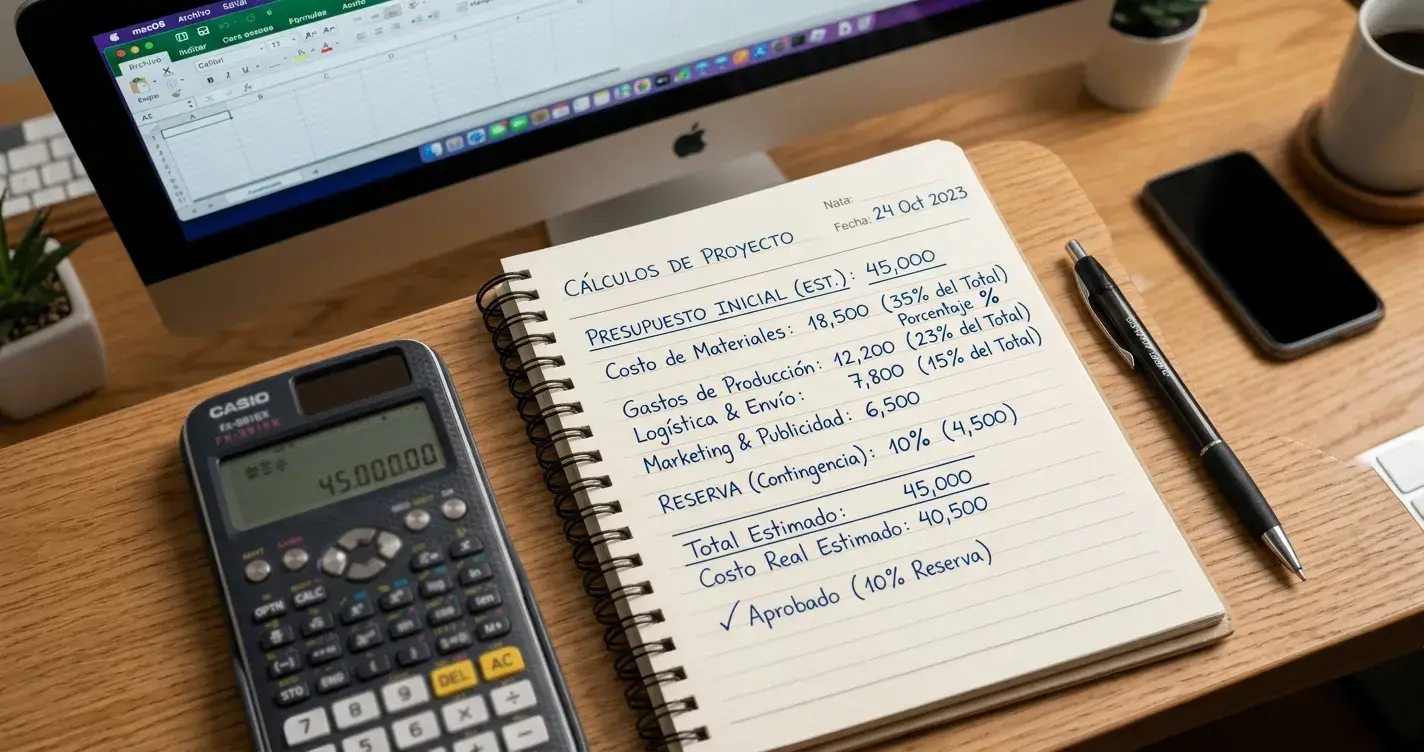 macOS Archivo Editar
Fórmulas
Archivo Inditar Cars asoass
Calibri
A1
CASIO
fx-991EX
45.000.00
OPTN CALC
STO ENG
DEL AC
7 8 9
5 6
M+
Nata:
Fecha: 24 Oct 2023
CÁLCULOS DE PROYECTO
PRESUPUESTO INICIAL (EST.): 45,000
Costo de Materiales: 18,500 (35% del Total)
Porcentaje %
Gastos de Producción: 12,200 (23% del Total)
Logística & Envío: 7,800 (15% del Total)
Marketing & Publicidad: 6,500
RESERVA (Contingencia): 10% (4,500)
Total Estimado: 45,000
Costo Real Estimado: 40,500
✓ Aprobado (10% Reserva)